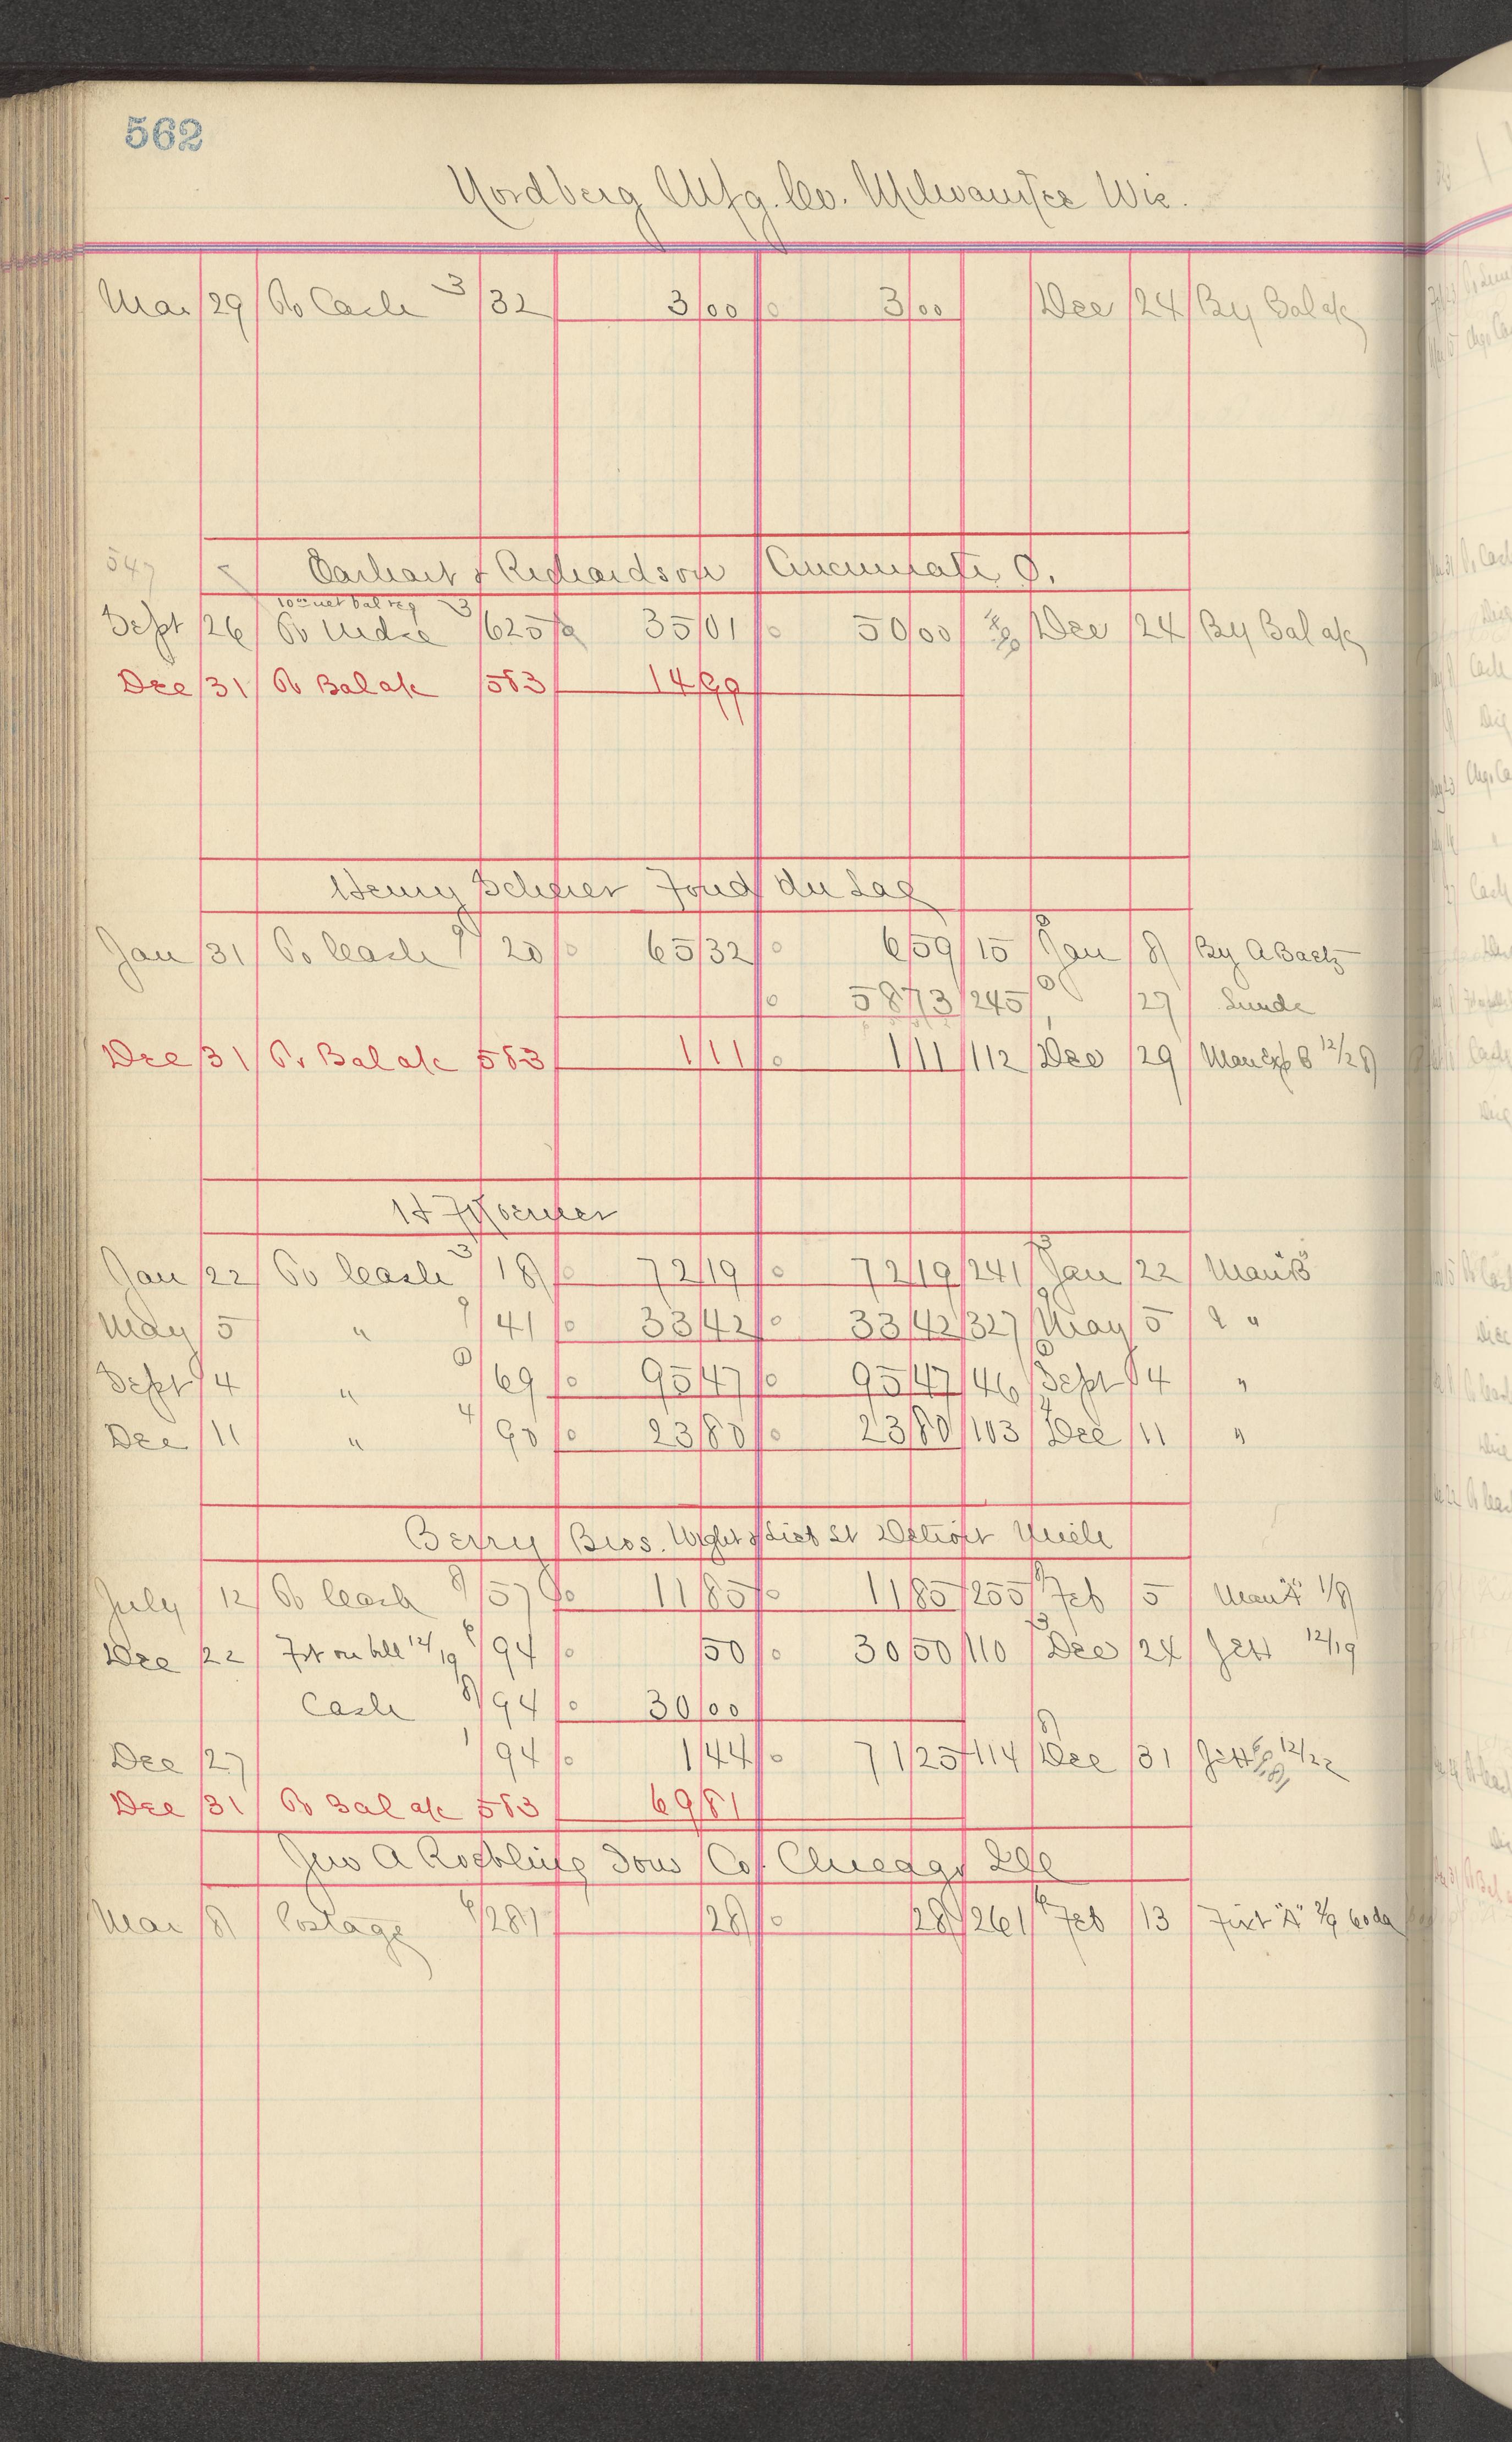 562
Nordberg Mfg. Co. Milwaukee Wis.
Mar 29 To Cash 3 32 3 00 3 00 Dec 24 By Bal a/c
547 Earhart & Richardson Cincinnati O.
net bal reg
Sept 26 To Mdse 3 625 35 01 50 00 Dec 24 By Bal a/c
Dec 31 To Bal a/c 583 14 99
Henry Scheier Fond du Lac
Jan 31 To Cash 9 20 65 32 6 59 15 Jan 8 By A Baetz
58 73 245 27 Sunde
Dec 31 To Bal a/c 583 1 11 1 11 112 Dec 29 Man Exp B 12/28
H F Koerner
Jan 22 To Cash 3 18 72 19 72 19 241 Jan 22 Man B
May 5 " 9 41 33 42 33 42 327 May 5 " "
Sept 4 " 69 95 47 95 47 46 Sept 4 "
Dec 11 " 4 90 23 80 23 80 103 Dec 11 "
Berry Bros. Wight & Lieb St Detroit Mich
July 12 To Cash 8 57 11 85 11 85 255 Feb 5 Man "A" 1/8
Dec 22 Frt on bill 12/19 6 94 50 30 50 110 Dec 24 Jett 12/19
Cash 8 94 30 00
Dec 27 1 94 1 44 71 25 114 Dec 31 Jett 12/22
Dec 31 To Bal a/c 583 69 81
Jno A Roebling Sons Co. Chicago Ill
Mar 8 Postage 6 28 28 28 261 Feb 13 Fixt "A" 2/9 60 da